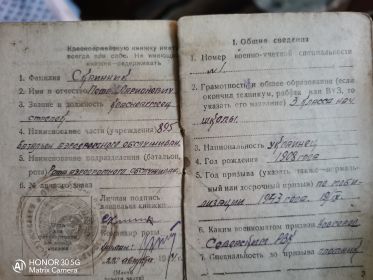 Красноармейскую книжку иметь
всегда при себе. Не имеющих
книжек—задерживать.
1. Фамилия
2. Имя и отчество Петр
3. Звание и должность красноармеец
стрелок
4. Наименование части (учреждения) 895
батальон аэродромного обслуживан.
5. Наименование подразделения (батальон,
рота) Рота аэродромного обслуживан.
6. № личного знака
Личная подпись
владельца книжки
Командир роты
22 августа
(Место
печати части)
I. Общие сведения
1. Номер военно-учетной специальности
№1.
2. Грамотность и общее образование (если
окончил техникум, рабфак или ВУЗ, то
указать его название) 3 класса нач.
школы.
3. Национальность украинец
4. Год рождения 1908 года
5. Год призыва (указать также—нормаль-
ный или досрочный призыв) по моби-
лизации 1943 года
6. Каким военкоматом призван
РВК
7. Специальность до призыва
3
HONOR 30 5G
Matrix Camera